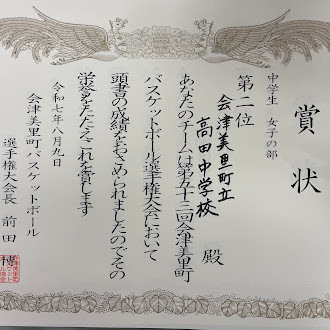 賞状
中学生 女子の部
第二位
会津美里町立
高田中学校 殿
あなたのチームは第五十三回会津美里町
バスケットボール選手権大会において
頭書の成績をおさめられましたのでその
栄誉をたたえこれを賞します
令和七年八月九日
会津美里町バスケットボール
選手権大会長 前田 博